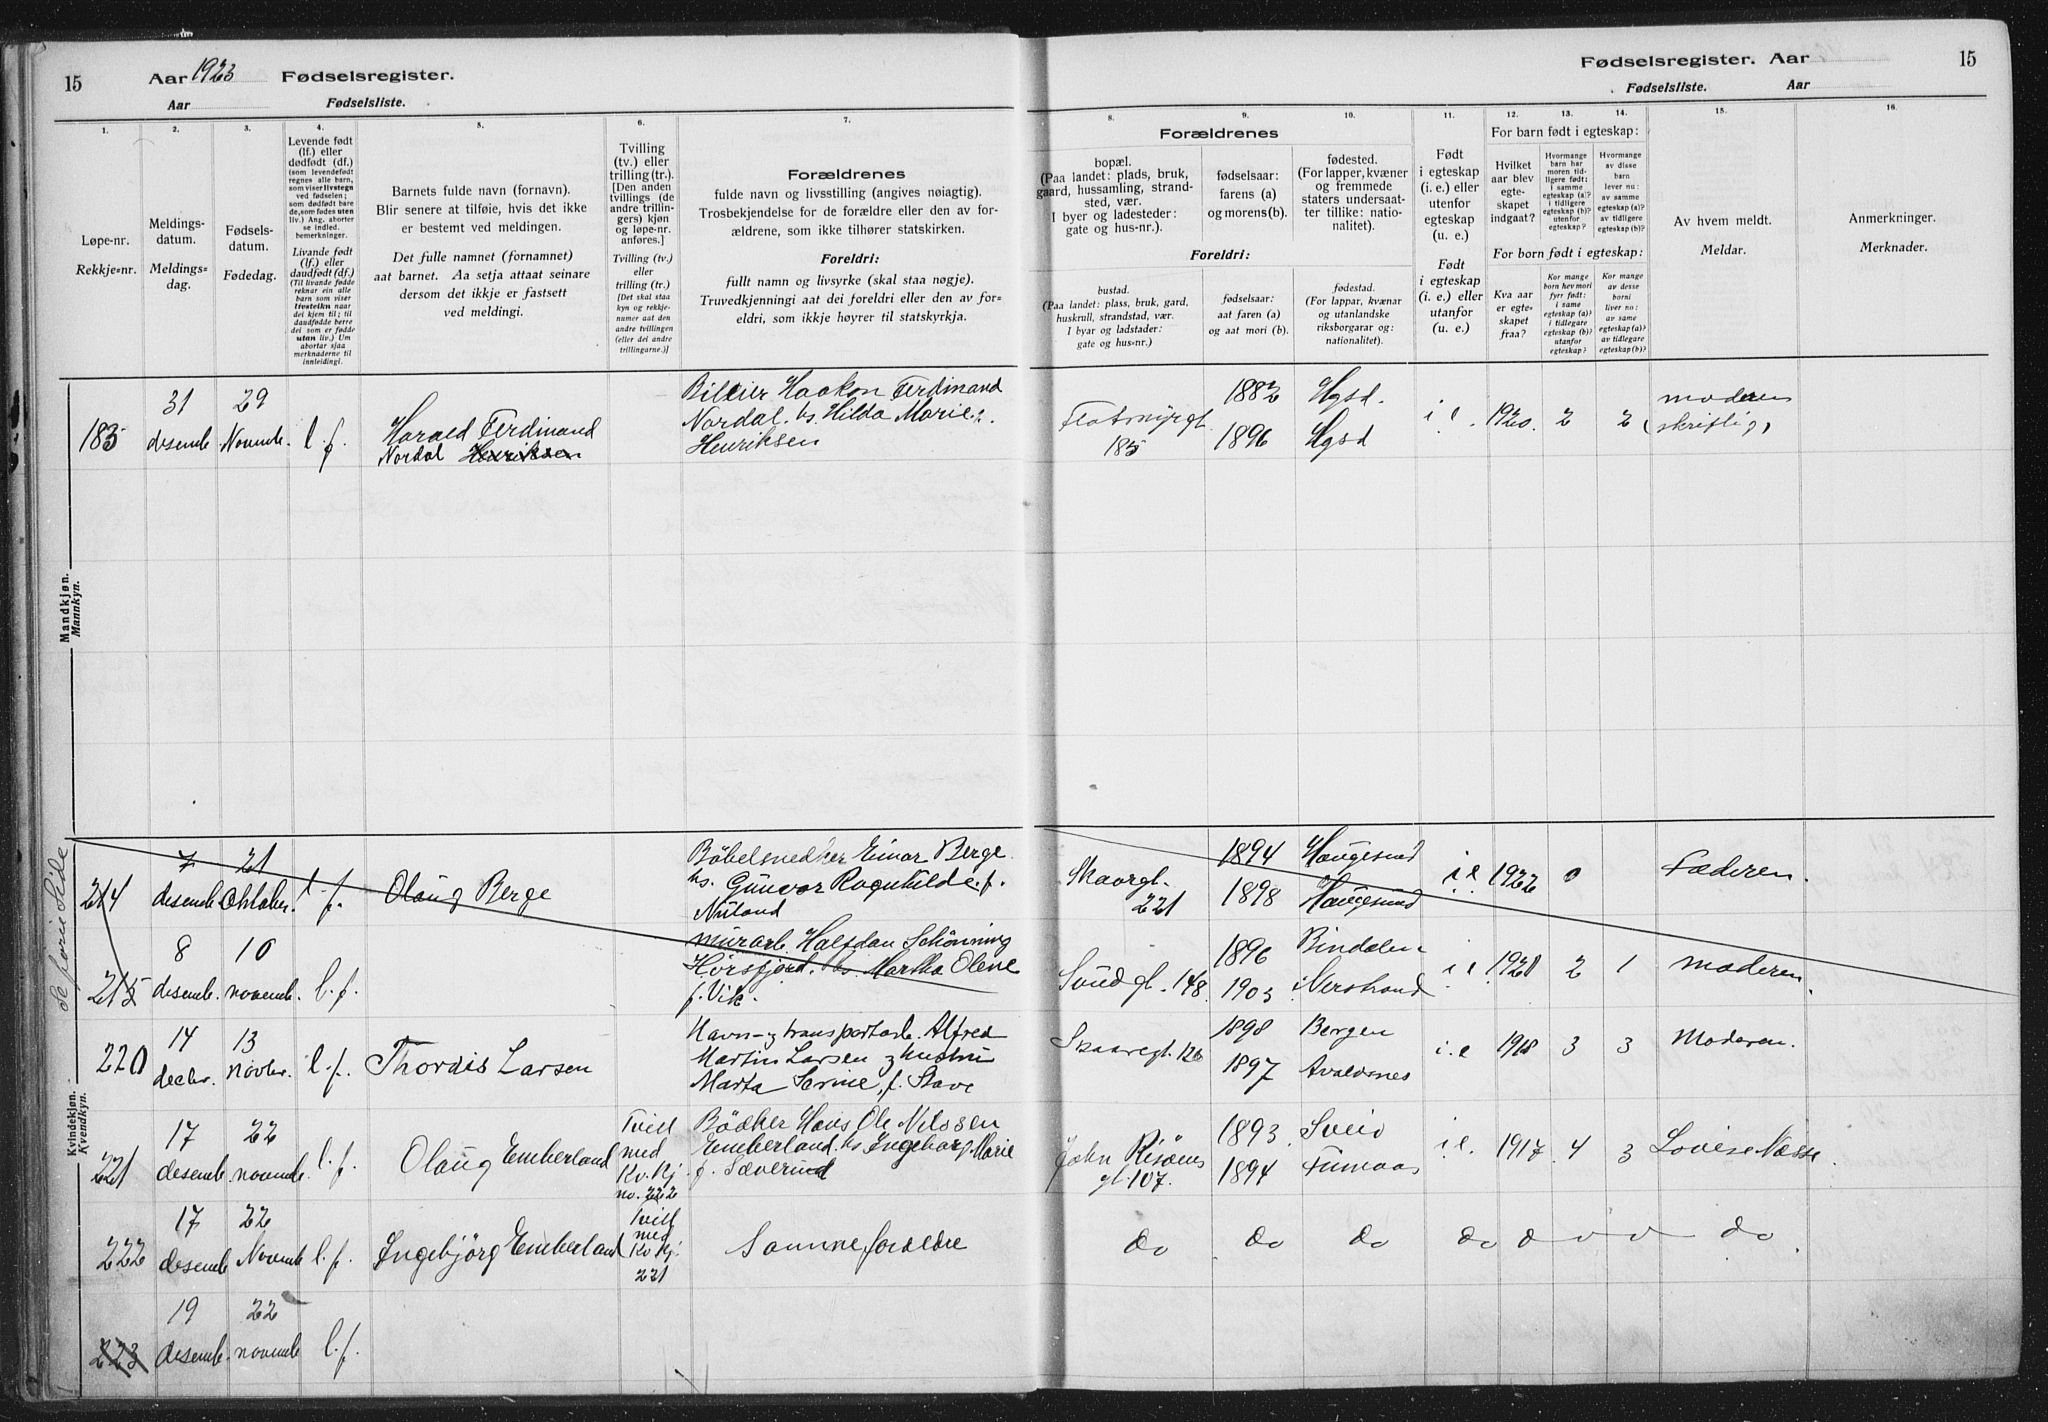 15 Aar 1923 Fødselsregister.
Aar Fødselsliste.
Fødselsregister. Aar 15
Fødselsliste. Aar
1.
Løpe-nr.
Rekkje-nr.
2.
Meldings-
datum.
Meldings-
dag.
3.
Fødsels-
datum.
Fødedag.
4.
Levende født
(lf.) eller
dødfødt (df.)
(som levendefødt
regnes alle barn,
som viser livstegn
ved fødselen;
som dødfødt bare
de, som fødes uten
liv.) Ang. aborter
se indled.
bemerkninger.
Livande født
(lf.) eller
daudfødt (df.)
(Til livande fødde
reknar ein alle
barn som viser
livsteikn naar
dei kjem til; til
daudfødde berre
dei som er fødde
utan liv.) Um
abortar sjaa
merknaderne til
innleidingi.
5.
Barnets fulde navn (fornavn).
Blir senere at tilføie, hvis det ikke
er bestemt ved meldingen.
Det fulle namnet (fornamnet)
aat barnet. Aa setja attaat seinare
dersom det ikkje er fastsett
ved meldingi.
6.
Tvilling
(tv.) eller
trilling (tr.).
[Den anden
tvillings (de
andre trillin-
gers) kjøn
og løpe-nr.
anføres.]
Tvilling (tv.)
eller
trilling (tr.)
[Det skal staa
kyn og rekkje-
numer aat den
andre tvillingen
(eller dei andre
trillingarne.)]
7.
Forældrenes
fulde navn og livsstilling (angives nøiagtig).
Trosbekjendelse for de forældre eller den av for-
ældrene, som ikke tilhører statskirken.
Foreldri:
fullt namn og livsyrke (skal staa nøgje).
Truvedkjenningi aat dei foreldri eller den av for-
eldri, som ikkje høyrer til statskyrkja.
Forældrenes
8.
bopæl.
(Paa landet: plads, bruk,
gaard, hussamling, strand-
sted, vær.
I byer og ladesteder:
gate og hus-nr.).
9.
fødselsaar:
farens (a)
og morens (b).
10.
fødested.
(For lapper, kvæner
og fremmede
staters undersaat-
ter tillike: natio-
nalitet).
Foreldri:
bustad.
(Paa landet: plass, bruk, gard,
huskrull, strandstad, vær.
I byar og ladstader:
gate og hus-nr.)
fødselsaar:
aat faren (a)
og aat mori (b).
fødestad.
(For lappar, kvænar
og utanlandske
riksborgarar og:
nationalitet).
11.
Født
i egteskap
(i. e.) eller
utenfor
egteskap
(u. e.)
Født
i egteskap
(i. e.) eller
utanfor
(u. e.)
For barn født i egteskap:
12.
Hvilket
aar blev
egte-
skapet
indgaat?
13.
Hvormange
barn har
moren tid-
ligere født:
i samme
egteskap (a)?
i tidligere
egteskap (b)?
utenfor
egteskap?
14.
Hvormange
av disse
barn
lever nu:
av samme
egteskap (a)?
av tidligere
egteskap (b)?
For born født i egteskap:
Kva aar
er egte-
skapet
fraa?
Kor mange
born hev mori
fyrr født:
i same
egteskap (a)?
i tidlegare
egteskap (b)?
utanfor
egteskap?
Kor mange
av desse
borni
liver nu:
av same
egteskap (a)?
av tidlegare
egteskap (b)?
15.
Av hvem meldt.
Meldar.
16.
Anmerkninger.
Merknader.
Mandkjøn.
Mannkyn.
183 31 desemb. 29 Novemb. l. f. Harald Ferdinand
Nordal Henriksen
Haakon Ferdinand
Nordal. hs. Hilda Marie f.
Henriksen
Flotmyrgt.
185
1882 Hgsd.
1896 Hgsd
i. e. 1920. 2 2 moderen
(skriftlig)
Se forrie Side
Kvindekjøn.
Kvendkyn.
214 7 desemb. 21 Oktober. l. f. Olaug Berge
Bøbelsnedker Einar Berge.
hs. Gunvor Ragnhild e. f.
Nuland
Skaargt.
221
1894 Haugesund
1898 Haugesund
i. e. 1922 0 Faderen.
215 8 desemb. 10 novemb. l. f.
murarb. Halfdan Schönning
Horsfjord. hs Martha Olene
f. Vik.
Sundgt. 148.
1896 Bindalen
1903 Nerstrand
i. e. 1921 2 1 Moderen.
220 14 decbr. 13 novbr. l. f. Thordis Larsen
Havn- og transportarb. Alfred
Martin Larsen og hustru
Marta Serine, f. Stave
Skaaregt. 126
1898 Bergen
1897 Avaldsnes
i. e 1918 3 3 Moderen.
221 17 desemb. 22 novemb. l. f. Olaug Emberland
Tvill
med
Kv. Kj.
no. 222
Bødker Hans Ole Nilssen
Emberland. hs Ingeborg Marie
f. Sæverud
John Risøens
gt. 107.
1893. Sveio
1894 Finnaas
i. e. 1917. 4 3 Lovise Næsse.
222 17 desemb. 22 Novemb. l. f. Ingebjörg Emberland
Tvill
med
Kv. Kj.
221
Samme foreldre
do do do do do do
223 19 desemb. 22 novemb. l. f.